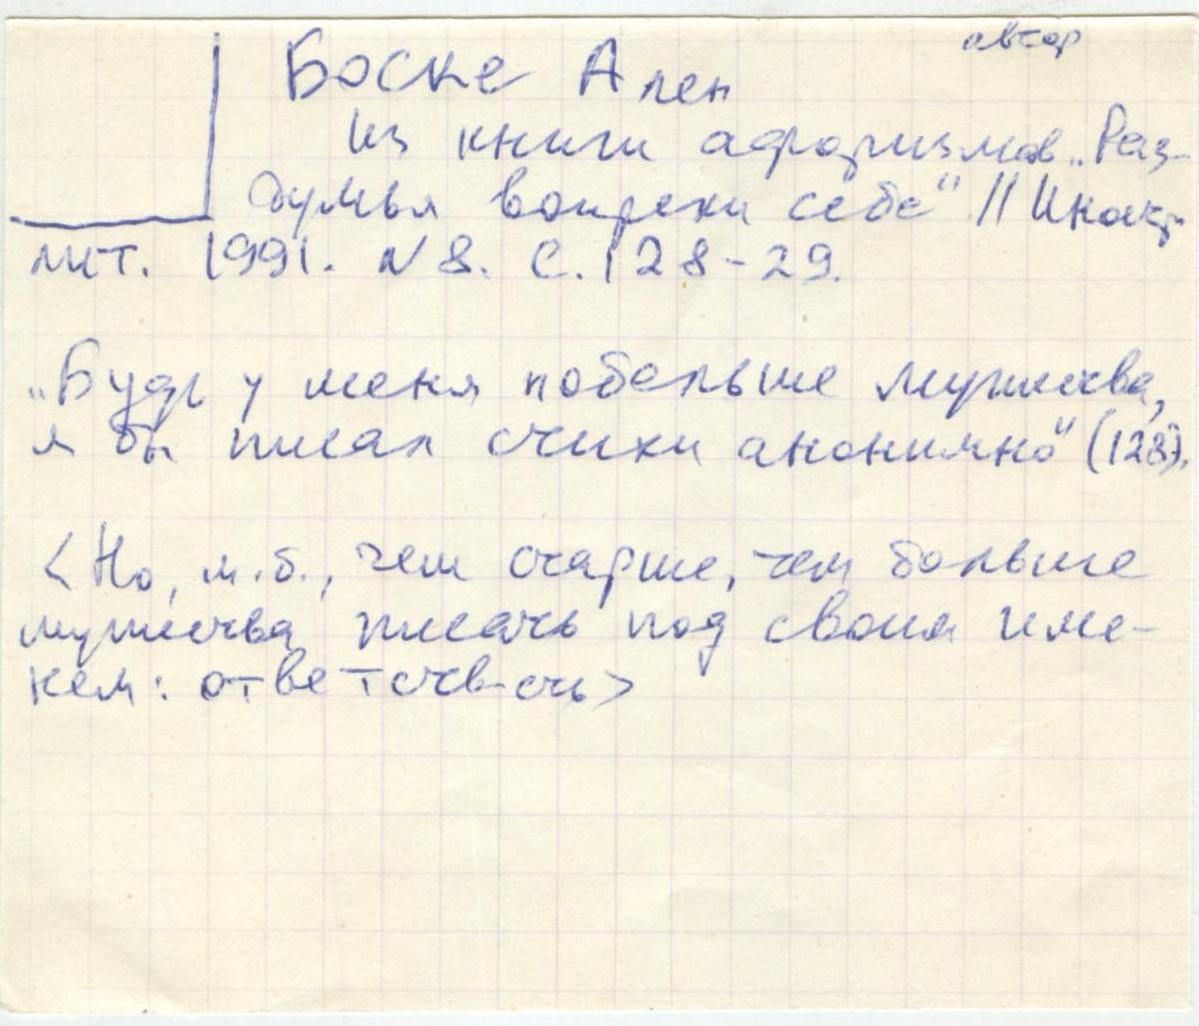 автор
Боске Ален
Из книги афоризмов „Раз-
думья вопреки себе" // Иностр.
лит. 1991. N 8. С. 128-29.
„Будь у меня побольше мужества,
я бы писал стихи анонимно" (128).
<Но, м.б., чем старше, чем больше
мужества писать под своим име-
нем: ответств-сть>